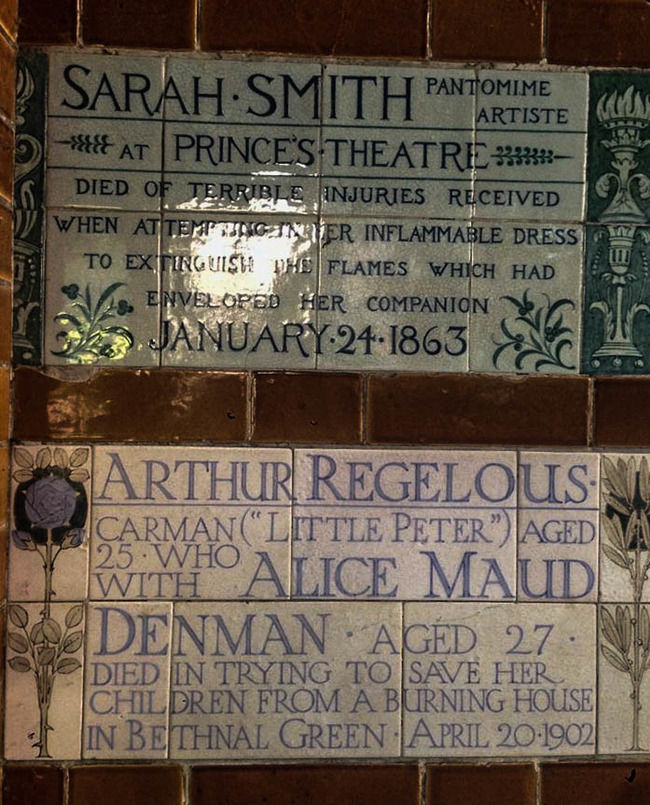 SARAH·SMITH PANTOMIME
ARTISTE
AT PRINCE'S·THEATRE
DIED OF TERRIBLE INJURIES RECEIVED
WHEN ATTEMPTING IN HER INFLAMMABLE DRESS
TO EXTINGUISH THE FLAMES WHICH HAD
ENVELOPED HER COMPANION
JANUARY·24·1863
ARTHUR REGELOUS·
CARMAN ("LITTLE PETER") AGED
25·WHO
WITH ALICE MAUD
DENMAN · AGED 27 ·
DIED IN TRYING TO SAVE HER
CHILDREN FROM A BURNING HOUSE
IN BETHNAL GREEN·APRIL 20·1902